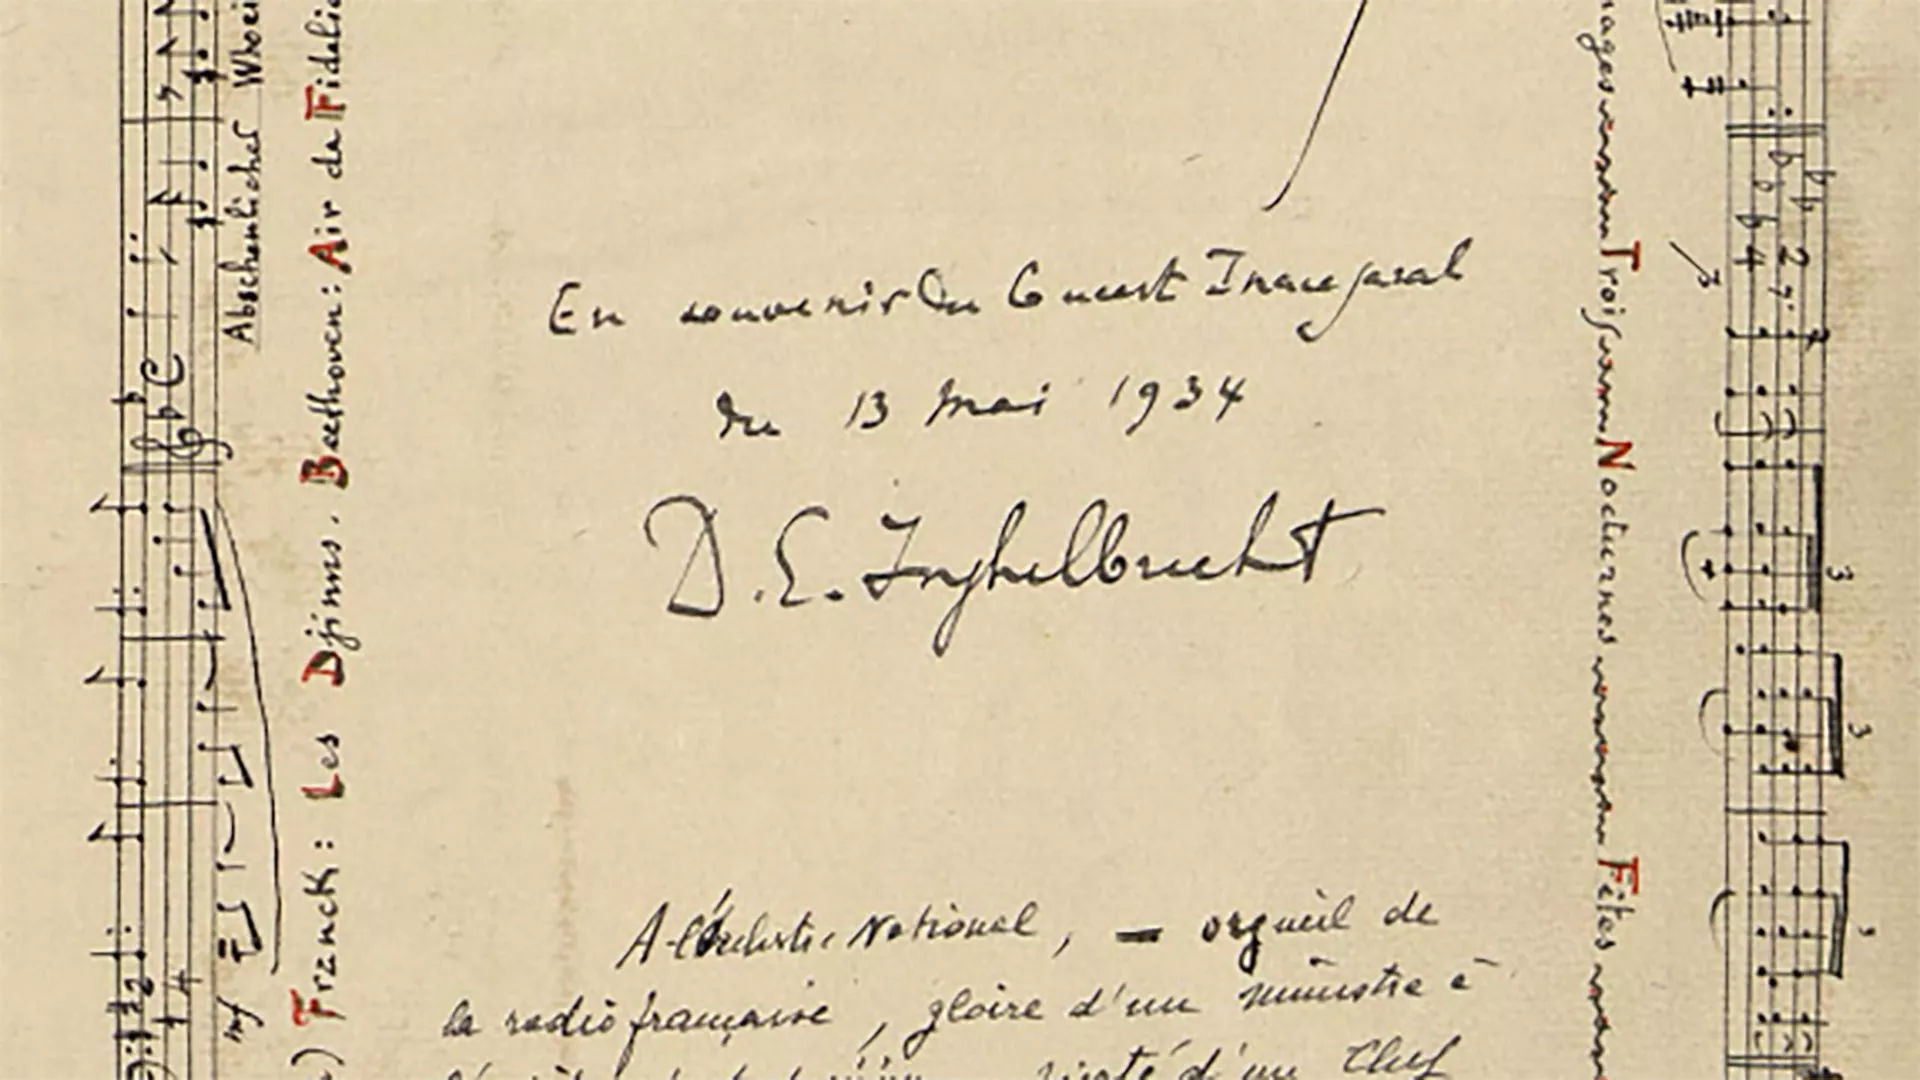 En souvenir du Concert Inaugural
du 13 Mai 1934
D.E. Inghelbrecht
A l'Orchestre National, — orgueil de
la radio française, gloire d'un ministre à
d'un Chef
Abscheulicher Wo
Franck: Les Djinns. Beethoven: Air de Fidelio
mf
Trois Nocturnes Fêtes
3
3
3
3